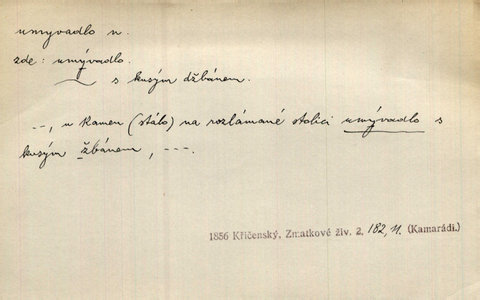 umyvadlo n.
zde: umývadlo.
s kusým džbánem.
--, u kamen (stálo) na rozlámané stolici umývadlo s
kusým žbánem, ---.
1856 Křičenský, Zmatkové živ. 2, 182, 11. (Kamarádi.)